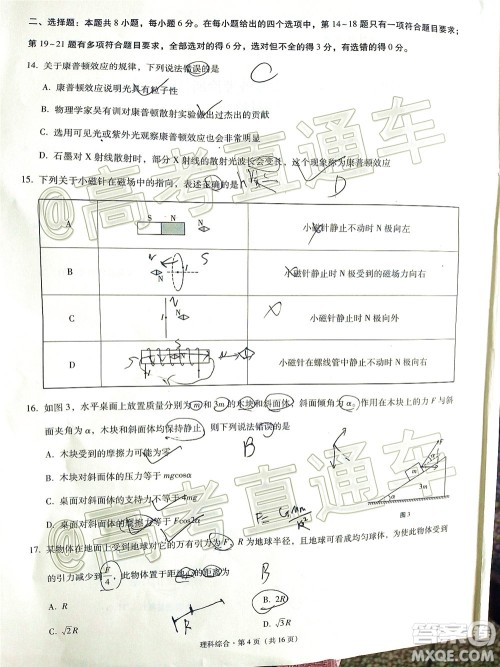 二、选择题：本题共 8 小题，每小题 6 分。在每小题给出的四个选项中，第 14～18 题只有一项符合题目要求；
第 19～21 题有多项符合题目要求，全部选对的得 6 分，选对但不全的得 3 分，有选错的得 0 分。
14. 关于康普顿效应的规律，下列说法错误的是 C
A. 康普顿效应说明光具有粒子性
B. 物理学家吴有训对康普顿散射实验做出过杰出的贡献
C. 用可见光或紫外光观察康普顿效应有显著的效果
D. 石墨对 X 射线散射时，部分 X 射线的散射光波长会变长，这个现象称为康普顿效应
15. 下列关于小磁针在磁场中的指向，表述正确的是 D
A S N 小磁针静止不动时 N 极向左
B 小磁针静止不动时 N 极受到的磁场力向右
C I 小磁针静止时 N 极向外
D 小磁针在螺线管中静止不动时 N 极向右
16. 如图 3，水平桌面上放置质量分别为 m 和 3m 的木块和斜面体，斜面倾角为 α，作用在木块上的力 F 与斜
面夹角为 α，木块和斜面体均保持静止，则下列说法错误的是
B
A. 木块受到的摩擦力可能为零
B. 木块对斜面体的压力等于 mgcosα
C. 桌面对斜面体的支持力小于 4mg
D. 桌面对斜面体的摩擦力等于 Fcos2α
F
m
α
3m
α
图 3
17. 某物体在地面上受到地球对它的万有引力为 F，R 为地球半径，且地球可看成均匀球体，为使此物体受到
的引力减少到 F/4，则此物体距地心的距离应为 B
A. R
B. 2R
C. √2R
D. √3R
理科综合·第 4 页（共 16 页）
@高考直通车
@高考直通车
答案圈
MXQE.COM